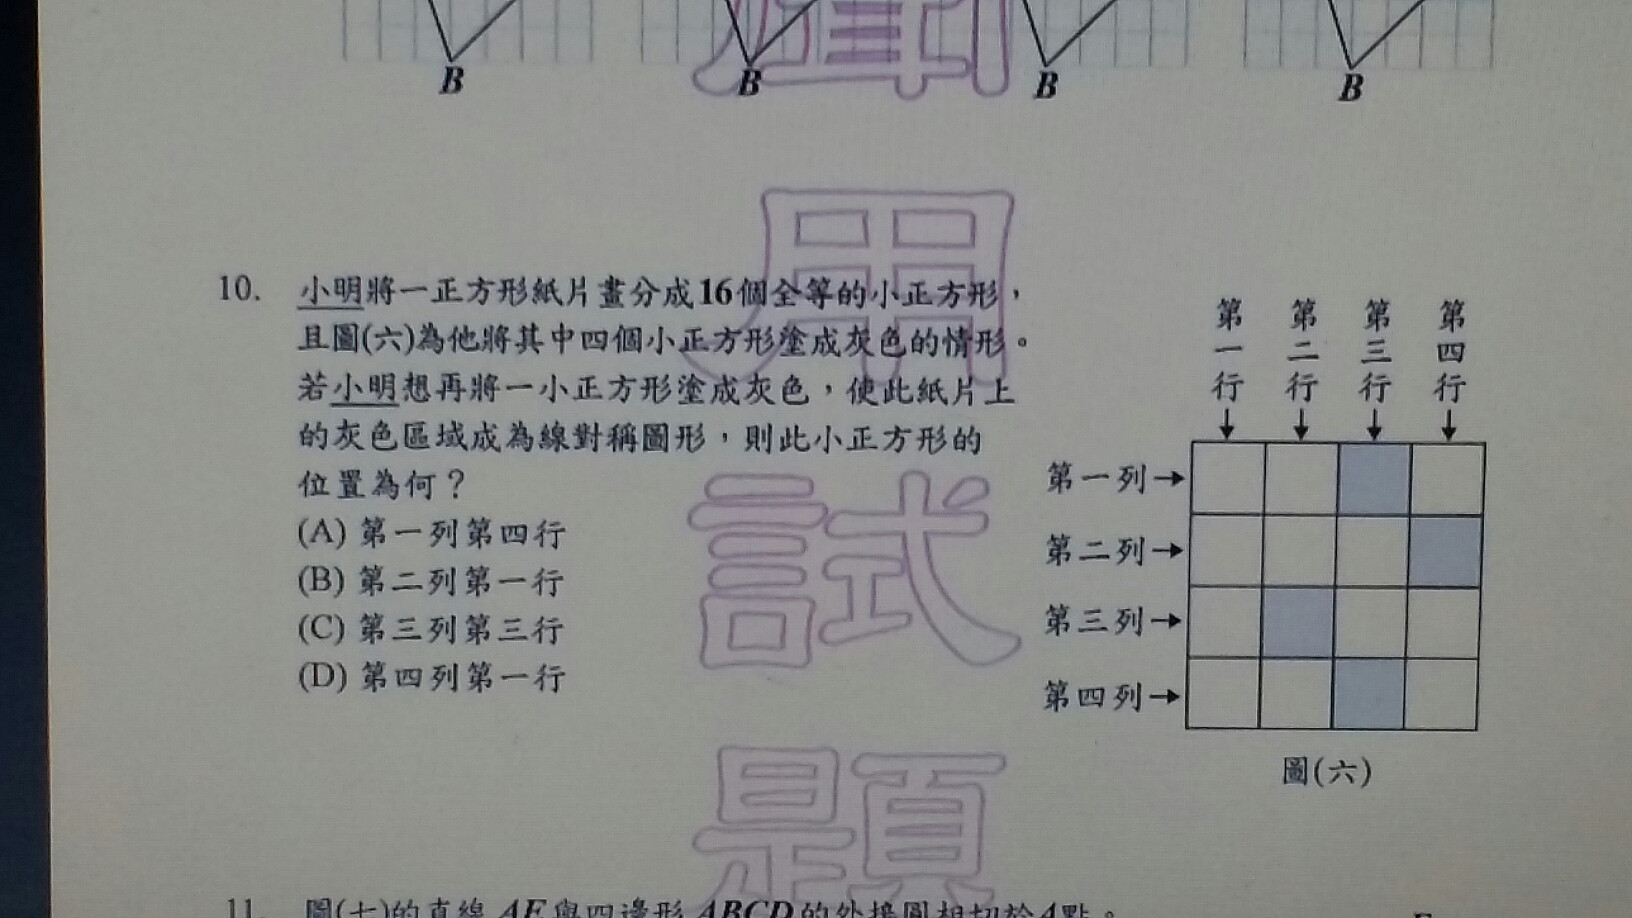 B B B B
10. 小明將一正方形紙片畫分成16個全等的小正方形，
且圖(六)為他將其中四個小正方形塗成灰色的情形。
若小明想再將一小正方形塗成灰色，使此紙片上
的灰色區域成為線對稱圖形，則此小正方形的
位置為何？
(A) 第一列第四行
(B) 第二列第一行
(C) 第三列第三行
(D) 第四列第一行
第一行
第二行
第三行
第四行
第一列→
第二列→
第三列→
第四列→
圖(六)
用
試
題
11. 圖(七)的直線 AE 與四邊形 ABCD 的外接圓相切於A點。